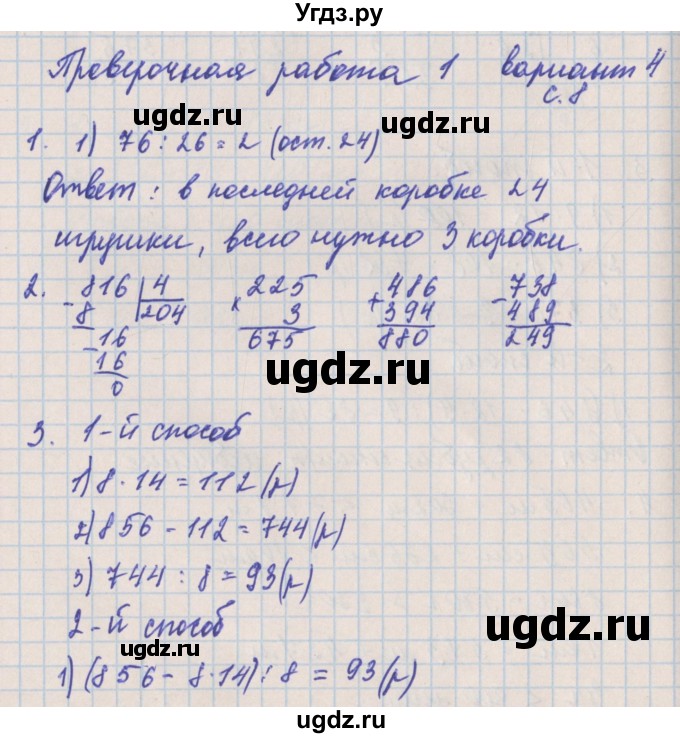 Угдз.ру
Проверочная работа 1 вариант 4
с. 8
ugdz.ru ugdz.ru
1. 1) 76 : 26 = 2 (ост. 24)
Ответ : в последней коробке 24
игрушки, всего нужно 3 коробки.
2. - 816 | 4 × 225 + 486 - 738
8 204 3 394 489
- 16 675 880 249
16
0
ugdz.ru ugdz.ru
3. 1-й способ
1) 8 · 14 = 112 (р)
2) 856 - 112 = 744 (р)
3) 744 : 8 = 93 (р)
2-й способ
ugdz.ru ugdz.ru
1) (856 - 8 · 14) : 8 = 93 (р)
ugdz.ru